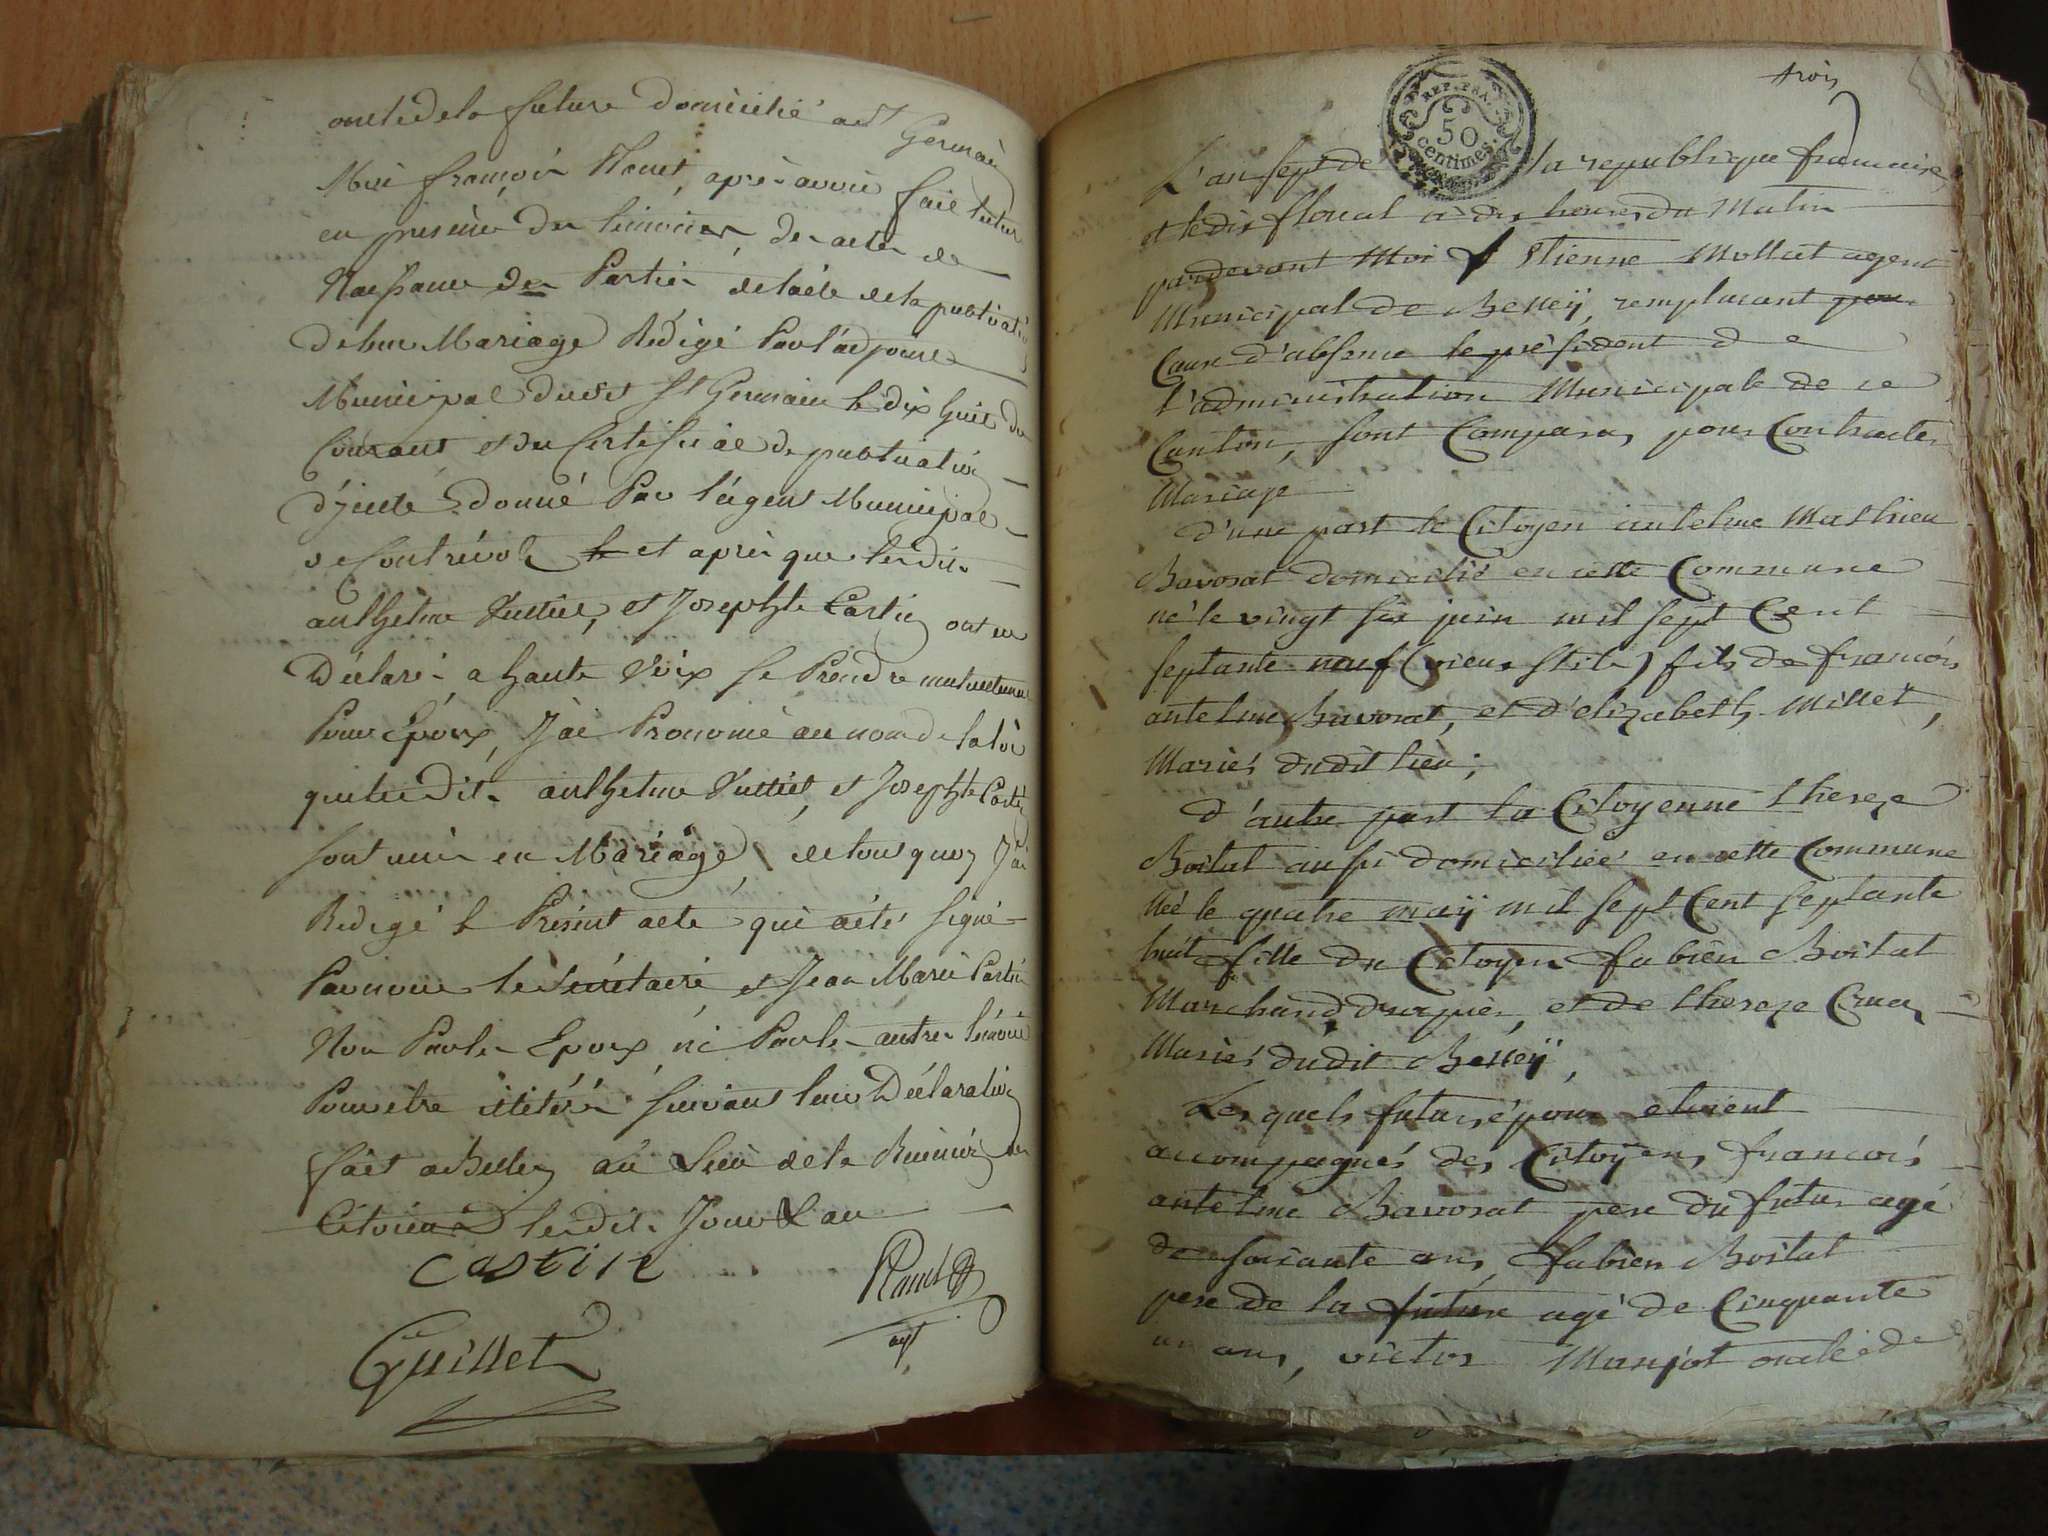 oncle de la future domicilié a St Germain
Moi françois Ranet, après avoir fait lecture
en presence des temoins, des actes de
Naissance des Parties de l'acte de la publication
de leur Mariage Rédigé Par l'adjoint
Municipal dudit St Germain le dix huit du
Courant et du Certificat de publication
d'jcelle donné Par l'agent Municipal
de Contrevoz le et après que lesdits
anthelme et Josephte Castin ont eu
Déclaré a haute Voix se Prendre mutuellement
Pour Epoux, J'ai Prononcé au nom de la loi
que lesdits anthelme et Josephte Castin
sont unis en Mariage, de tout quoy J'ai
Redigé le Présent acte qui a été signé
Par nous le Secrétaire et Jean Marie Castin
Non Par les Epoux, ni Par les autres temoins
Pour etre illitérés suivant leur Déclaration
fait a Belley au Lieu de la Reunion des
Citoiens lesdits Jour & an
castin
Guillet
agt
trois
REP. FRA.
50
centimes.
L'an sept de la republique francaise,
et le dix floreal à dix heures du Matin
pardevant Moi Etienne Mollet agent
Municipal de Belleÿ, remplacant pour
Cause d'absence le president de
l'administration Municipale de ce
Canton, sont Comparus pour Contracter
Mariage
d'une part le Citoyen antelme Mathieu
Bavosat domicilié en cette Commune
né le vingt six juin mil sept Cent
septante neuf (vieux stile) fils de francois
antelme Bavosat, et d'elizabeth Millet,
Mariés dudit lieu;
d'autre part la Citoyenne thereze
Boitat aussi domiciliée en cette Commune
Née le quatre maÿ mil sept Cent septante
huit fille du Citoyen fabien Boitat
Marchand drapier, et de thereze Cruz
Mariés dudit Belleÿ,
Les quels futurs époux etoient
accompagnés des Citoÿens francois
antelme Bavosat pere du futur agé
de soixante ans, fabien Boitat
pere de la future agé de Cinquante
un ans, victor Manjot oncle de